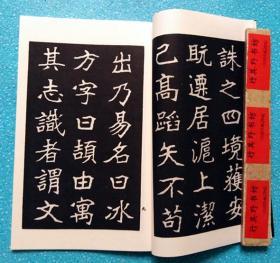 誅之四境獲安
既遷居滬上潔
己高蹈矢不苟
出乃易名曰冰
方字曰頡由寓
其志識者謂文
九